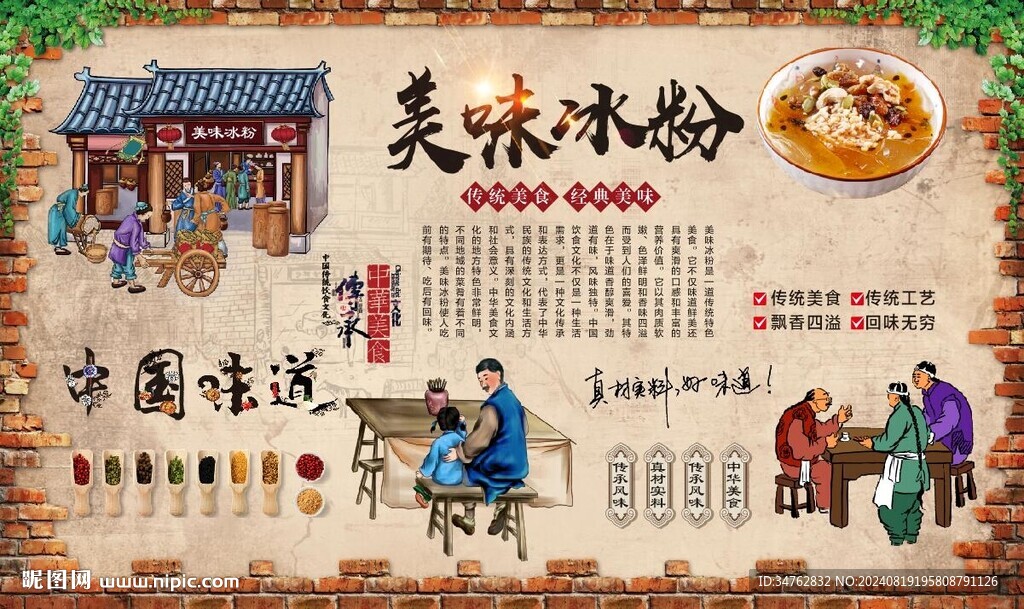 美味冰粉
美味冰粉
传统美食 经典美味
美味冰粉是一道传统特色
美食。它不仅味道鲜美还
具有爽滑的口感和丰富的
营养价值。它以其肉质软
嫩、色泽鲜明和香味四溢
而受到人们的喜爱。其特
色在于味道香醇爽滑，劲
道有味，风味独特。中国
饮食文化不仅是一种生活
需求，更是一种文化传承
和表达方式，代表了中华
民族的传统文化和生活方
式，具有深刻的文化内涵
和社会意义。中华美食文
化的地方特色非常鲜明，
不同地域的菜肴有着不同
的特点。美味冰粉使人吃
前有期待、吃后有回味。
传统美食
传统工艺
飘香四溢
回味无穷
中国传统饮食文化
传承
中华美食
文化
中国味道
真材实料,好味道!
传承风味
真材实料
传承风味
中华美食
昵图网 www.nipic.com
ID:34762832 NO:20240819195808791126